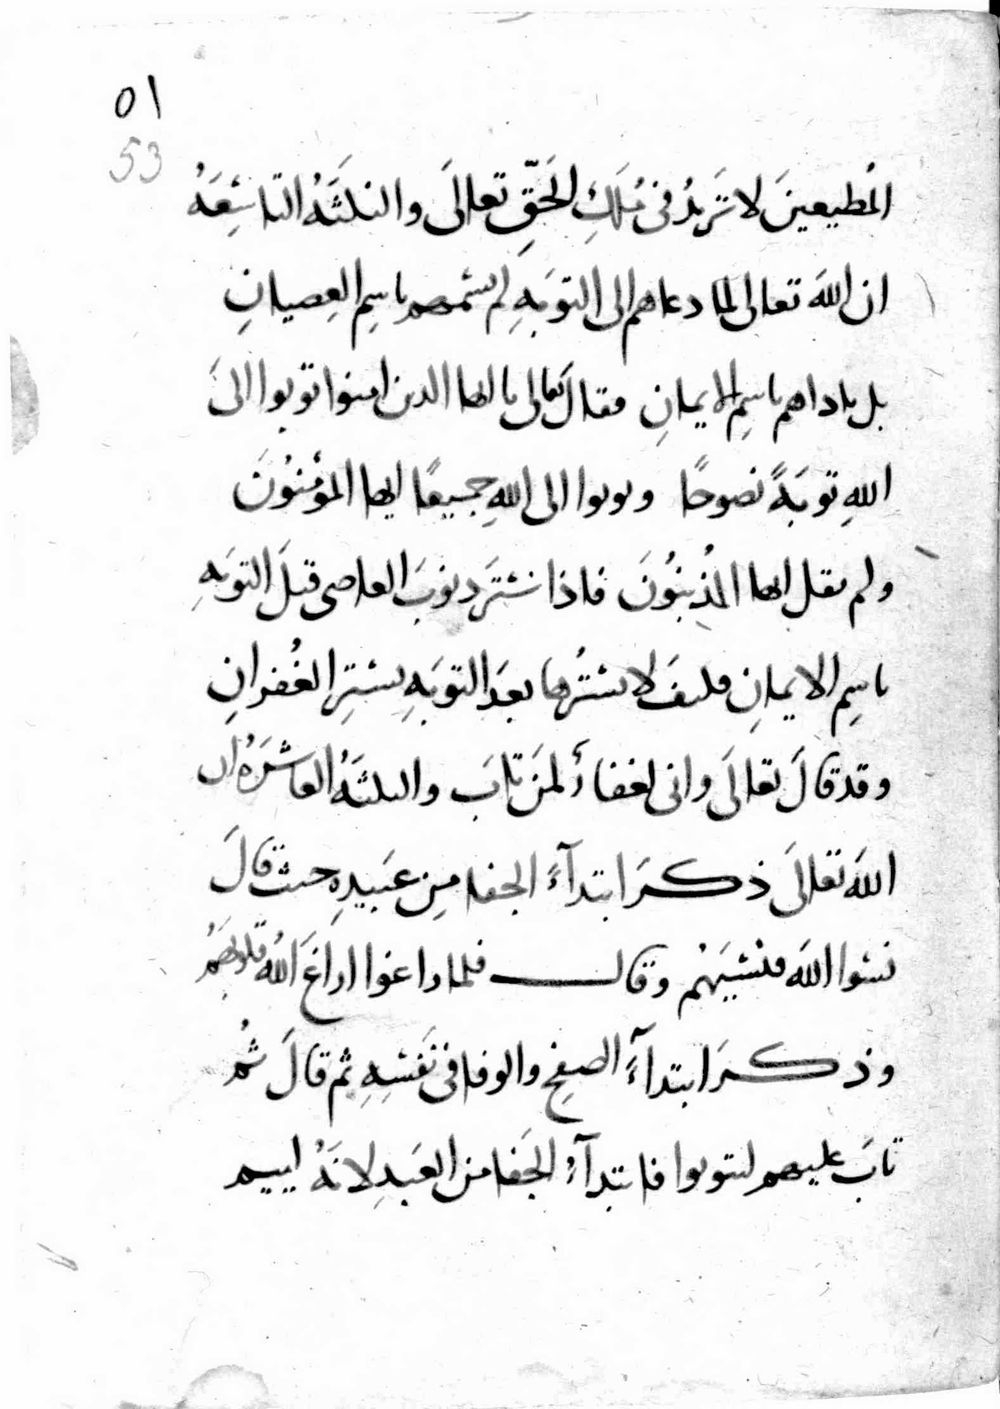 ٥١
53
المُطيعينَ لا تَزيدُ فى مُلكِ الحَقِّ تعالَى والنكتَهُ التاسِعَهُ
ان اللهَ تعالى لما دعاهم الى التوبَهِ لم يسمهم باسِم العِصيانِ
بل ناداهم باسِم الايمانِ فقالَ تعالى يا ايها الذين امنوا توبوا الىَ
اللهِ توبَةً نصوحًا وتوبوا الى اللهِ جميعًا ايها المؤمِنُونَ
ولم يقل ايها المُذنِبُونَ فاذا سَتَرَ ذنوبَ العاصى قبلَ التوبَهِ
باسِم الايمانِ فكيفَ لا يستُرُها بعدَ التوبَهِ بسَترِ الغُفرانِ
وقد قالَ تعالَى وانى لغفارٌ لمن تابَ والنكتَهُ العاشرَهُ ان
اللهَ تعالَى ذكرَ ابتدآءَ الجفا مِن عَبيدِه حيث قالَ
نسُوا اللهَ فنسيَهُم وقال فلما زاغوا ازاغَ اللهُ قلوبَهُم
وذكرَ ابتدآءَ الصفحِ والوفا فى نَفسِهِ ثم قالَ ثُم
تابَ عليهم ليتوبوا فابتدآءُ الجَفا من العَبدِ لانَهُ لييم